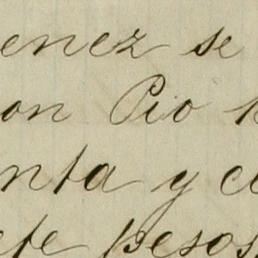 enez se
on Pio
nta y c
ete pesos